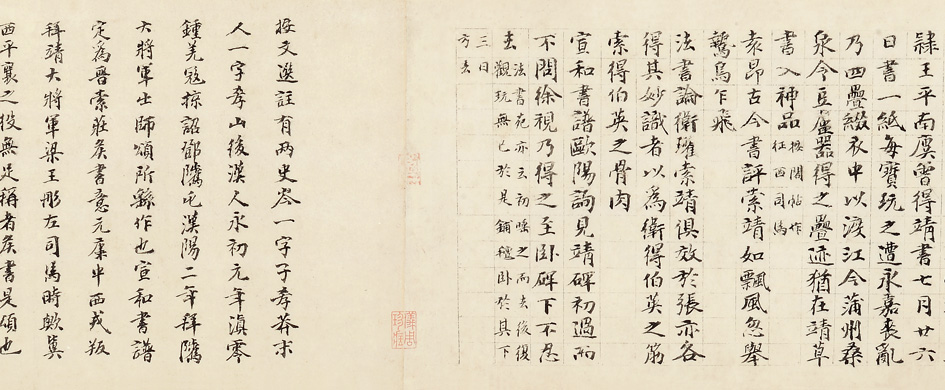 隸王平南虞曾得靖書七月廿六
日書一紙每寶玩之遭永嘉喪亂
乃四疊綴衣中以渡江今蒲州桑
泉令豆盧器得之疊迹猶在靖草
書入神品按閣帖作征西司馬
袁昂古今書評索靖如飄風忽舉
鷙鳥乍飛
法書論衛瓘索靖俱效於張亦各
得其妙識者以為衛得伯英之筋
索得伯英之骨肉
宣和書譜歐陽詢見靖碑初過而
不問徐視乃得之至臥碑下不忍
去法書苑亦云初唾之而去後復
觀玩無已於是鋪氈臥於其下
三日
方去
按文選註有兩史岑一字子孝莽末
人一字孝山後漢人永初元年滇零
鍾羌寇掠詔鄧騭屯漢陽二年拜騭
大將軍出師頌所繇作也宣和書譜
定為晉索莊矦書意元康中西戎叛
拜靖大將軍梁王彤左司馬時歟奠
西平襄之役無足稱者矦書是頌也